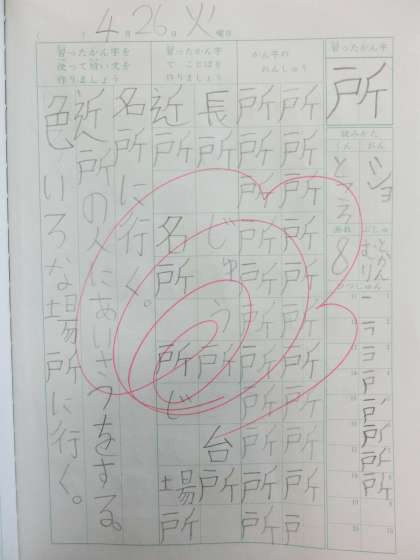 ( ) 4月26日 火曜日
習ったかん字
所
読みかた
おん
ショ
くん
ところ
ぶしゅ
とかんむり
画数
8
ひつじゅん
かん字の
れんしゅう
所所所所所所所所所所戸
所所所所所所所所所所所
習ったかん字
で ことばを
作りましょう
長所
じゅう所
台所
近所
名所
所じ
場所
習ったかん字を
使って短い文を
作りましょう
名所に行く。
近所の人にあいさつをする。
色いろな場所に行く。